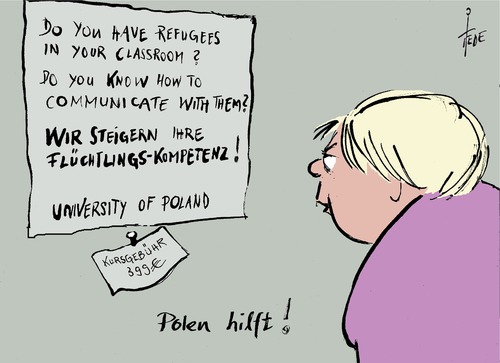 DO YOU HAVE REFUGEES
IN YOUR CLASSROOM?
DO YOU KNOW HOW TO
COMMUNICATE WITH THEM?
WIR STEIGERN IHRE
FLÜCHTLINGS-KOMPETENZ!
UNIVERSITY OF POLAND
KURSGEBÜHR
399€
Polen hilft!
TIEDE